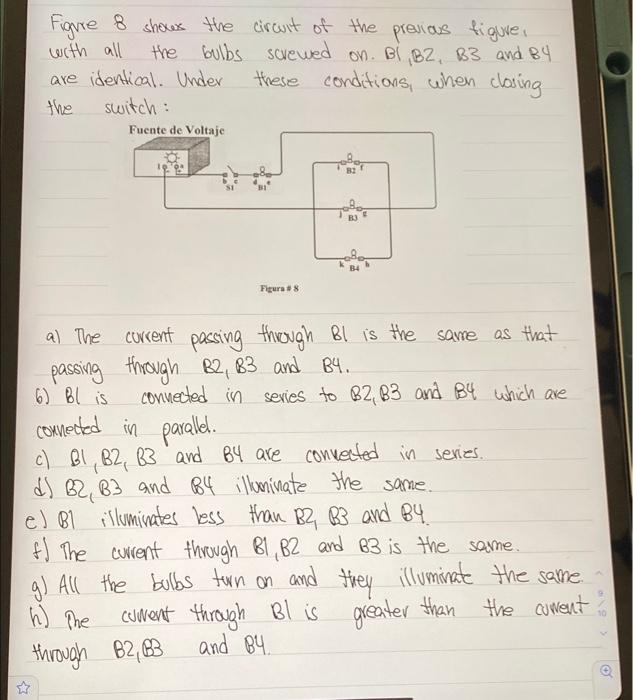 Figure 8 shows the circuit of the previous figure,
with all the bulbs screwed on. B1, B2, B3 and B4
are identical. Under these conditions, when closing
the switch:
Fuente de Voltaje
b c d e
S1 B1
i f
B2
j g
B3
k h
B4
Figura # 8
a) The current passing through B1 is the same as that
passing through B2, B3 and B4.
b) B1 is connected in series to B2, B3 and B4 which are
connected in parallel.
c) B1, B2, B3 and B4 are connected in series.
d) B2, B3 and B4 illuminate the same.
e) B1 illuminates less than B2, B3 and B4.
f) The current through B1, B2 and B3 is the same.
g) All the bulbs turn on and they illuminate the same.
h) The current through B1 is greater than the current
through B2, B3 and B4.
9
10